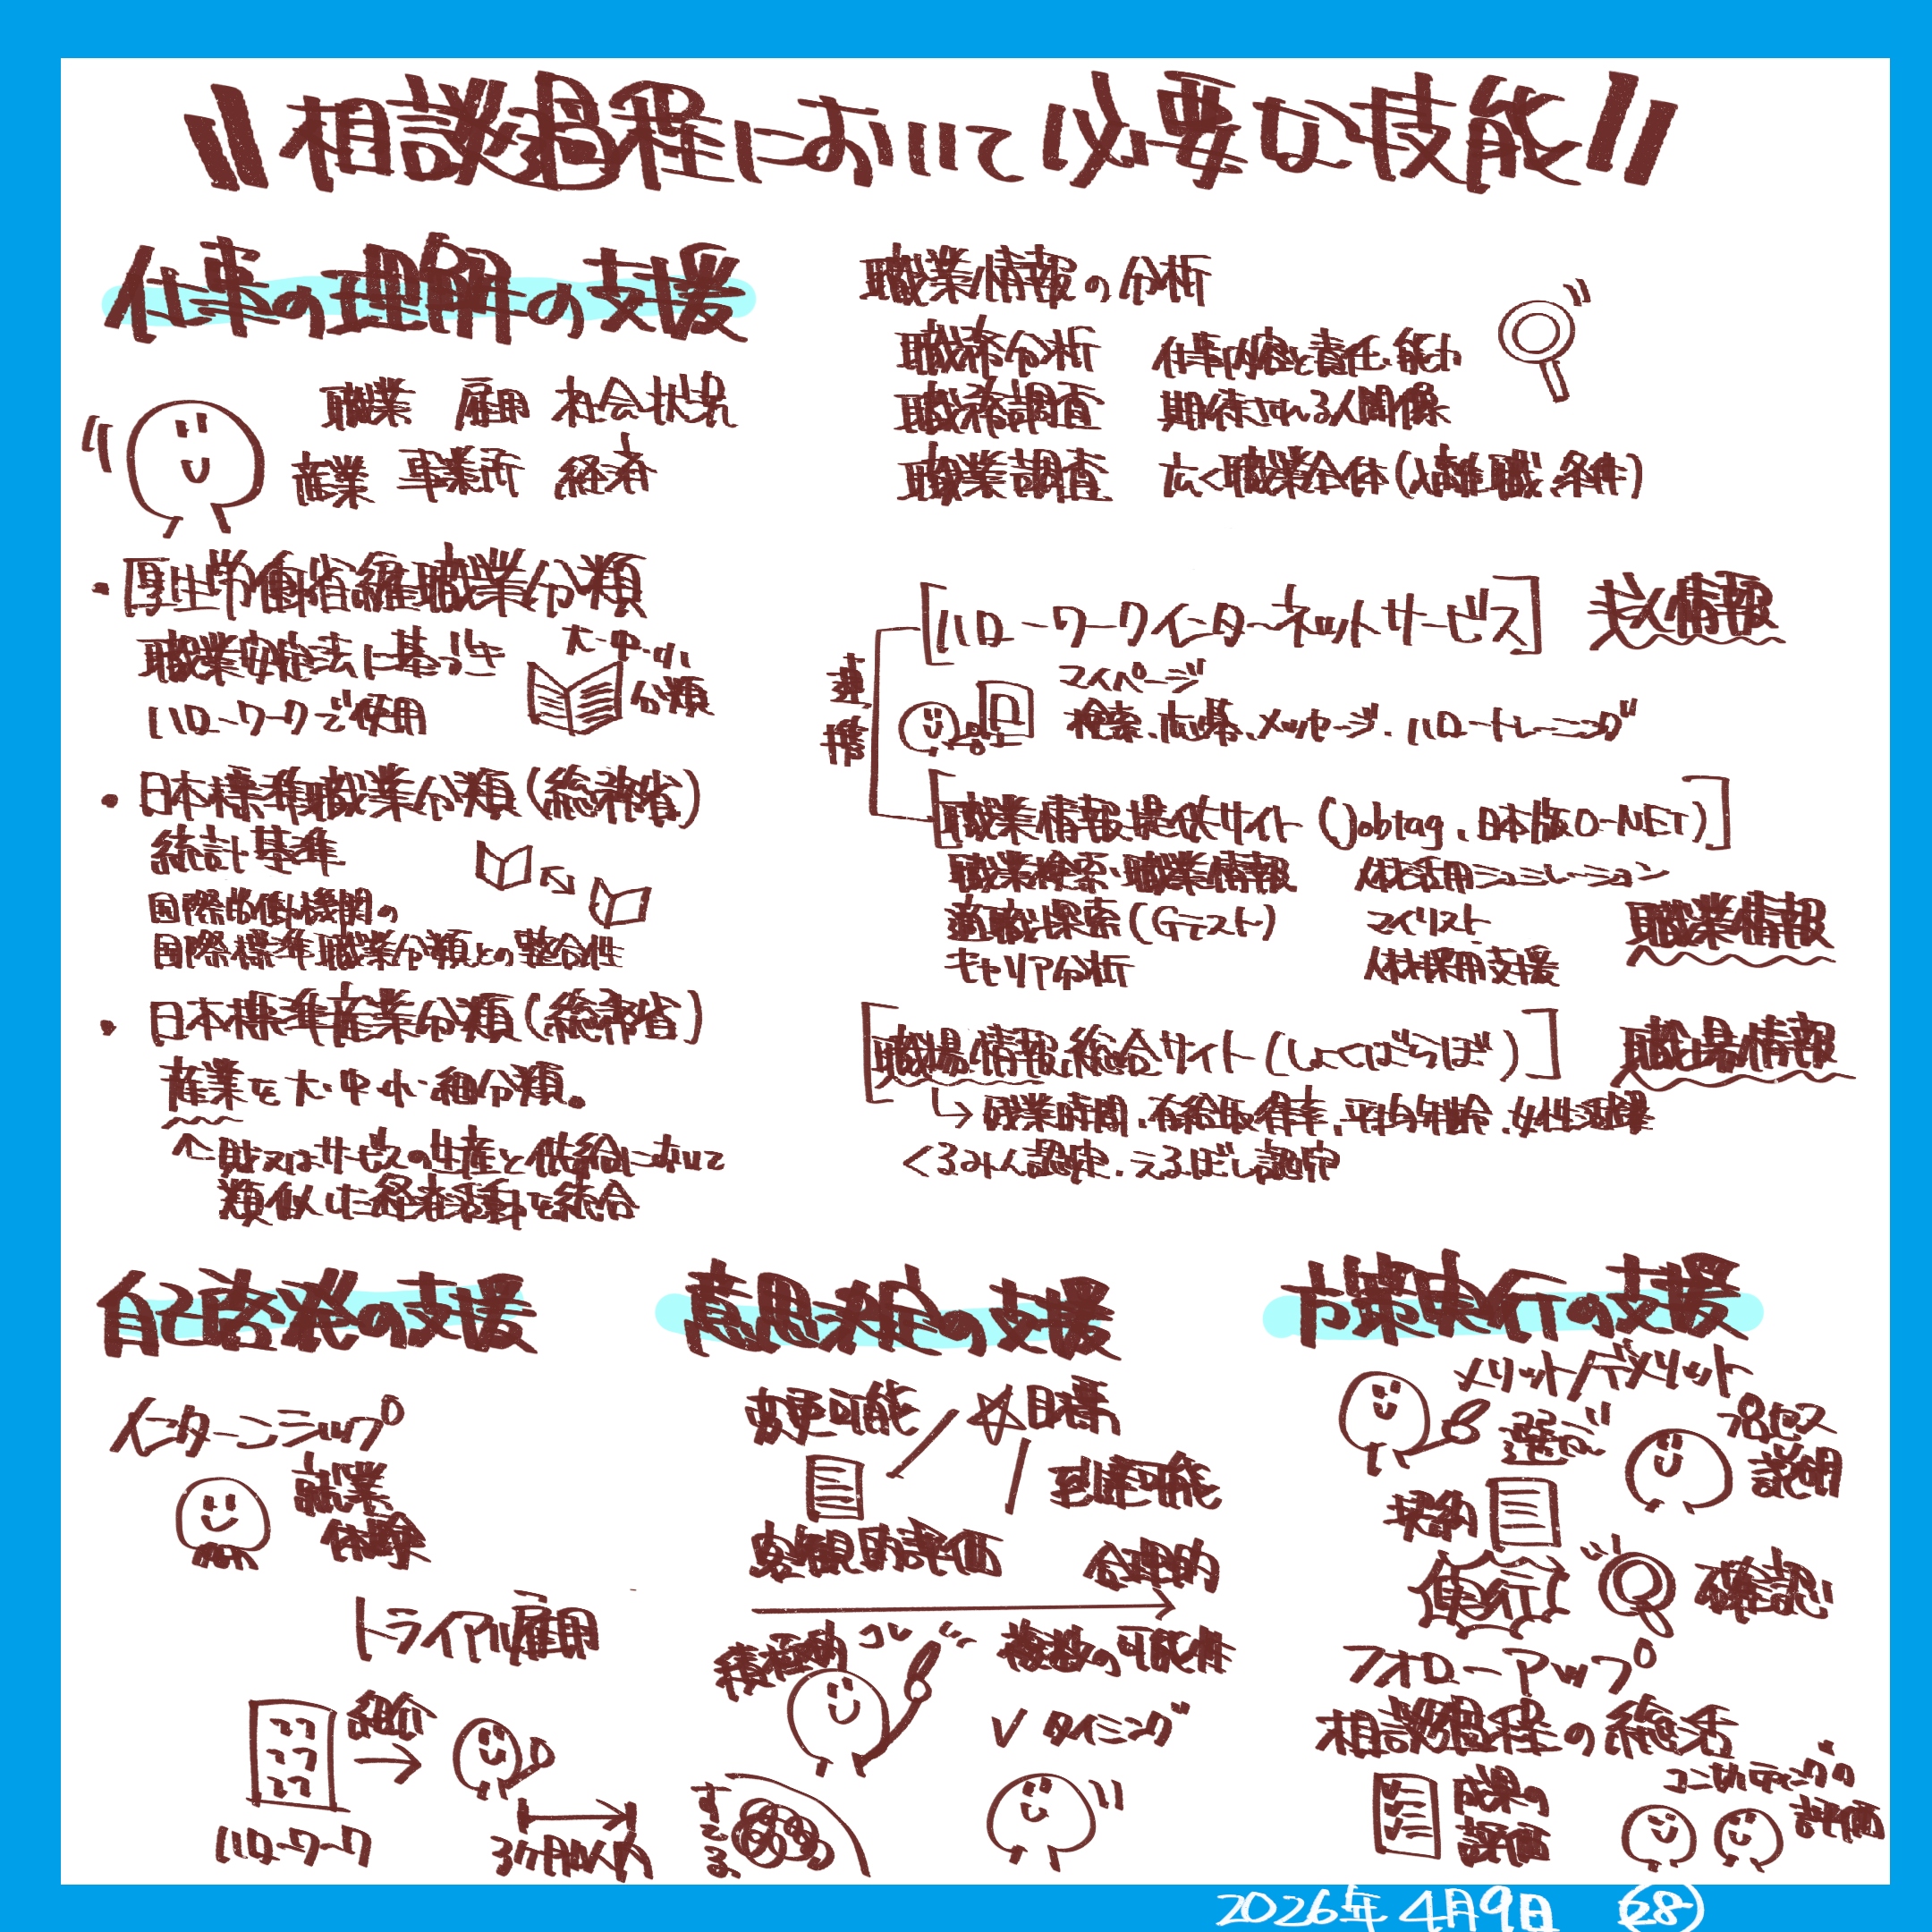 相談過程において必要な技能
仕事の理解の支援
職業 雇用 社会状況
産業 事業所 経済
・厚生労働省編職業分類
職業安定法に基づき
ハローワークで使用
大・中・小
分類
・日本標準職業分類(総務省)
統計基準
国際労働機関の
国際標準職業分類との整合性
・日本標準産業分類(総務省)
産業を大・中・小・細分類。
↑財又はサービスの生産と供給において
類似した経済活動を統合
職業情報の分析
職務分析 仕事内容と責任、能力
職務調査 期待される人間像
職業調査 広く職業全体(入離職、条件)
連携
[ハローワークインターネットサービス] 求人情報
マイページ
検索、応募、メッセージ、ハロートレーニング
[職業情報提供サイト(jobtag、日本版O-NET)]
職業検索・職業情報 人材活用シュミレーション
適職探索(Gテスト) マイリスト
キャリア分析 人材採用支援
職業情報
[職場情報総合サイト(しょくばらぼ)] 職場情報
↳残業時間、有給取得率、平均年齢、女性活躍
くるみん認定、えるぼし認定
自己啓発の支援
インターンシップ
就業
体験
トライアル雇用
紹介
ハローワーク
3ヶ月以内
意思決定の支援
変更可能 ☆目標
到達可能
客観的評価 合理的
積極的 コレ 複数の可能性
✓タイミング
すてる
方策実行の支援
メリット/デメリット
選ぶ
プロセス
説明
契約
実行
確認
フォローアップ
相談過程の総括
成果の
評価
コンサルティングの
評価
2026年4月9日 28